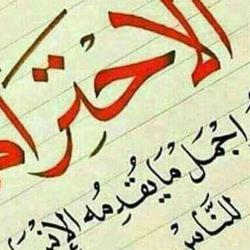 الاحترام
أجمل ما يقدمه الإنسان
للنَّاس